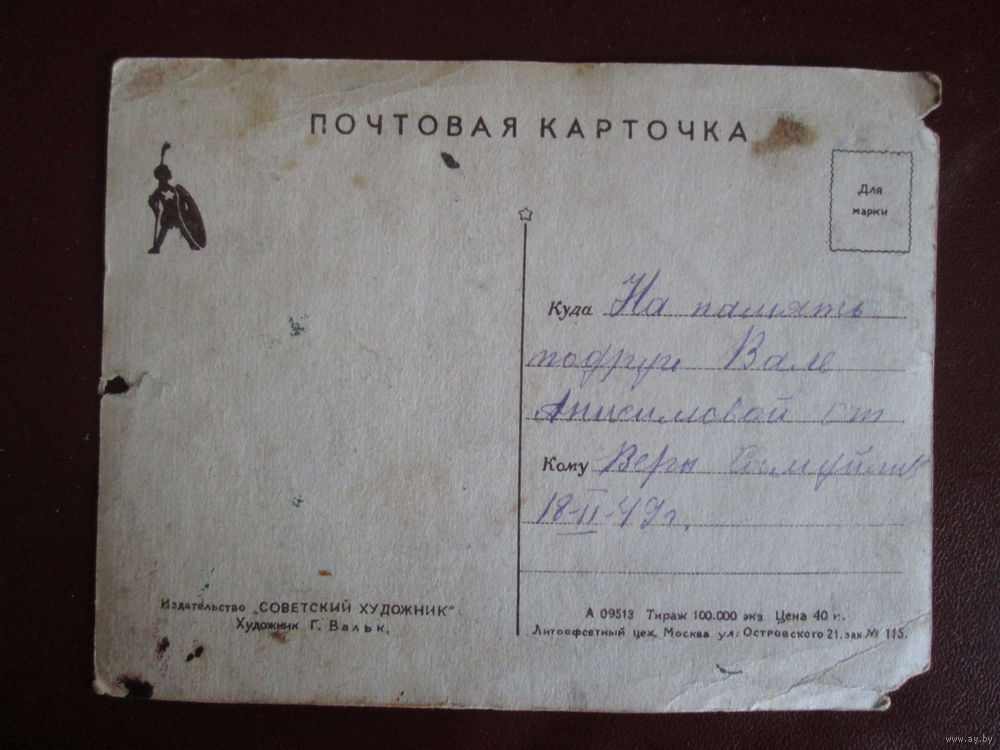 ПОЧТОВАЯ КАРТОЧКА
Для
марки
Куда На память
подруге Вале
Анисимовой от
Кому Веры
18-II-49г.
Издательство „СОВЕТСКИЙ ХУДОЖНИК"
Художник Г. Вальк.
А 09513 Тираж 100.000 экз. Цена 40 к.
Литоофсетный цех, Москва ул. Островского 21, зак № 115.
www.ay.by